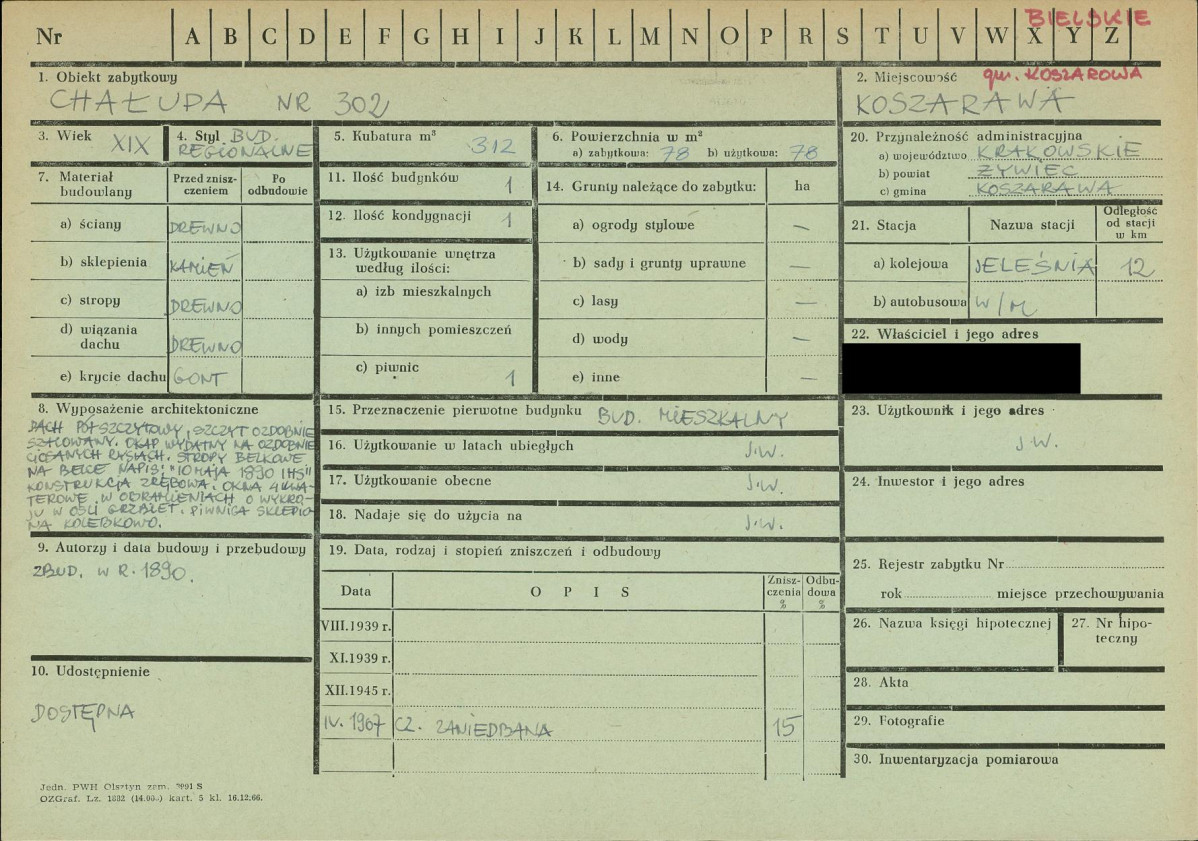 BIELSKIE
Nr A B C D E F G H I J K L M N O P R S T U V W X Y Z
1. Obiekt zabytkowy
CHAŁUPA NR 302
2. Miejscowość gm. KOSZAROWA
KOSZARAWA
3. Wiek XIX
4. Styl BUD.
REGIONALNE
5. Kubatura m³
312
6. Powierzchnia w m²
a) zabytkowa: 78 b) użytkowa: 78
20. Przynależność administracyjna
a) województwo KRAKOWSKIE
b) powiat ŻYWIEC
c) gmina KOSZARAWA
7. Materiał budowlany
Przed zniszczeniem
Po odbudowie
a) ściany DREWNO
b) sklepienia KAMIEŃ
c) stropy DREWNO
d) wiązania dachu DREWNO
e) krycie dachu GONT
11. Ilość budynków 1
12. Ilość kondygnacji 1
13. Użytkowanie wnętrza
według ilości:
a) izb mieszkalnych
b) innych pomieszczeń
c) piwnic 1
14. Grunty należące do zabytku: ha
a) ogrody stylowe —
b) sady i grunty uprawne —
c) lasy —
d) wody —
e) inne —
21. Stacja Nazwa stacji Odległość od stacji w km
a) kolejowa JELEŚNIA 12
b) autobusowa W/M
22. Właściciel i jego adres
8. Wyposażenie architektoniczne
DACH PÓŁSZCZYTOWY, SZCZYT OZDOBNIE
SZALOWANY. OKAP WYDATNY NA OZDOBNIE
CIOSANYCH RYSIACH. STROPY BELKOWE
NA BELCE NAPIS: "10 MAJA 1890 IHS"
KONSTRUKCJA ZRĘBOWA. OKNA 4 KWA-
TEROWE W OBRAMIENIACH O WYKRO-
JU W OŚLI GRZBIET. PIWNICA SKLEPIO
NA KOLEBKOWO.
15. Przeznaczenie pierwotne budynku BUD. MIESZKALNY
16. Użytkowanie w latach ubiegłych J.W.
17. Użytkowanie obecne J.W.
18. Nadaje się do użycia na J.W.
23. Użytkownik i jego adres
J.W.
24. Inwestor i jego adres
9. Autorzy i data budowy i przebudowy
ZBUD. W R. 1890.
19. Data, rodzaj i stopień zniszczeń i odbudowy
Data OPIS Zniszczenia % Odbudowa %
VIII.1939 r.
XI.1939 r.
XII.1945 r.
IV. 1967 CZ. ZANIEDBANA 15
25. Rejestr zabytku Nr
rok miejsce przechowywania
26. Nazwa księgi hipotecznej
27. Nr hipoteczny
28. Akta
29. Fotografie
30. Inwentaryzacja pomiarowa
10. Udostępnienie
DOSTĘPNA
Jedn. PWH Olsztyn zam. 2991 S
OZGraf. Lz. 1882 kart. 5 kl. 16.12.66.